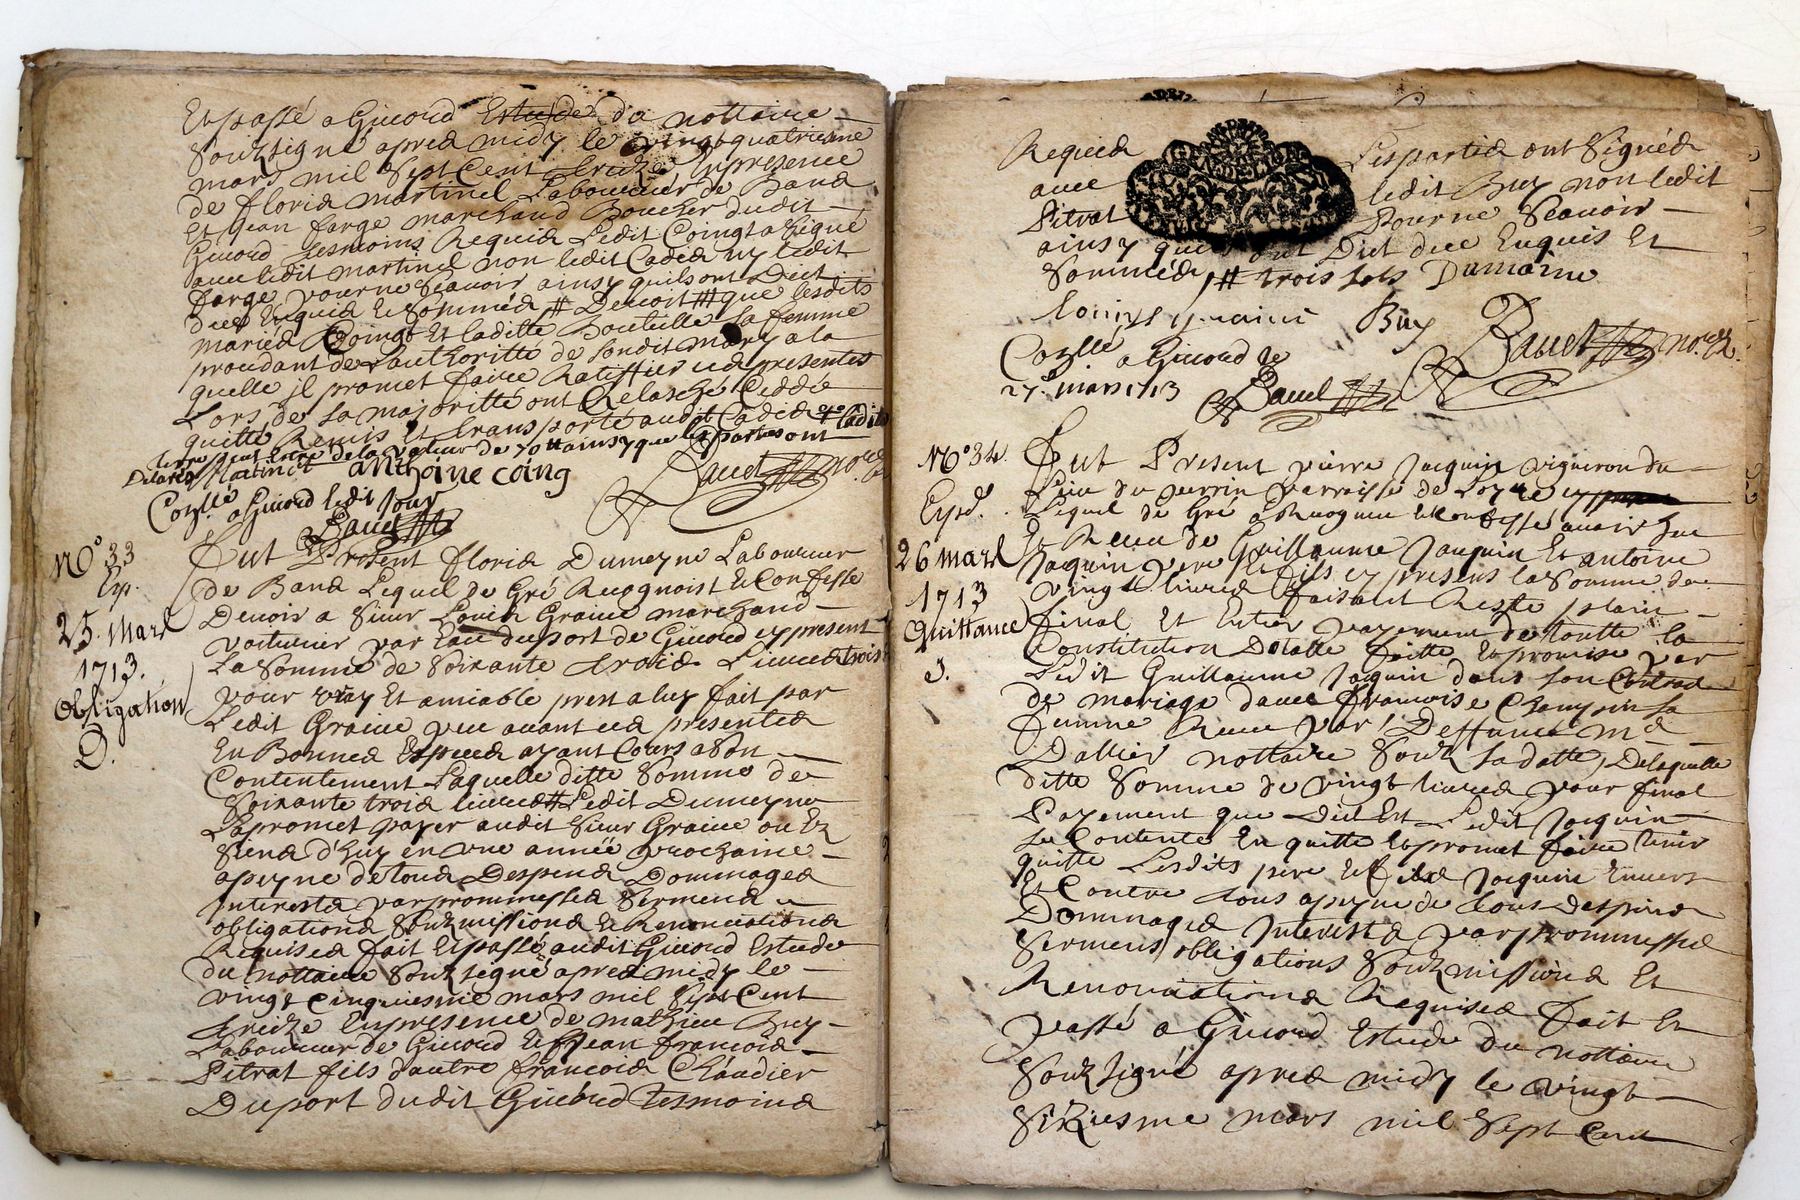 Et passé a Givord Estude du nottaire
Souzsigné apres midy le vingt quatriesme
mars mil Sept Cent treize En presence
de floris martinel Laboureur de Bans
Et Jean farge marchand Boucher dudit
Givord tesmoins Requis Ledit Coingt a signé
avec ledit martinel non ledit Cades ny ledit
farge pour ne Scavoir ainsy quils ont Dict
dues Enquis Et Sommés # Devoit # que lesdits
mariés Coingt Et laditte Bouteille sa femme
procedant de l'authoritté de sondit mary a la
quelle il promet faire Ratiffier ces presentes
Lors de sa majoritté ont Relasché Ceddé
quitté Remis Et transporté audit Cades
de la valeur de 70 # ainsy que les parties ont
Declaré Martinel anthoine coing
Conlle a Givord ledit Jour
No 33
Exp.
25 Mars
1713.
Obligation
D.
Fut Present floris Dumeyne Laboureur
de Bans Lequel de Gré Recognoist Et Confesse
Devoir a Sieur Louis Graive marchand
voiturier par Eau du port de Givord cy present
La Somme de Soixante trois Livres trois
pour vray Et amiable prest a luy fait par
Ledit Graive peu avant ces presentes
En Bonnes Especes ayant Cours a son
Contentement Laquelle ditte Somme de
Soixante trois livres # Ledit Dumeyne
La promet payer audit Sieur Graive ou Ez
Siens d'huy en une année prochaine
a peyne de tous Despens Dommages
Interests par prommesses Sermens
obligations Souzmissions Et Renonciations
Requises fait Et passé audit Givord Estude
du nottaire Souzsigné apres midy le
vingt Cinquiesme mars mil Sept Cent
treize En presence de mathieu Buy
Laboureur de Givord Et Jean francois
Pitrat fils d'autre francois Chandier
Du port dudit Givord tesmoins
Requis Les parties ont Signés
avec ledit Buy non ledit
Pitrat Pour ne Scavoir
ainsy quils ont Dict dues Enquis Et
Sommés # trois sols Dumaine
Buy
Conlle a Givord le
27 mars 1713
No 34.
Exped.
26 Mars
1713
Quittance
3.
Fut Present pierre Jacquin vigneron du
Lieu du perrin parroisse de Loyre cy
Lequel de Gré a Recogneu Et Confessé avoir heu
Et Receu de Guillaume Jacquin Et antoine
Jacquin pere Et fils cy presens la Somme de
vingt livres faisant Reste plain
final Et Entier payement de toutte la
Constitution Dotalle faitte Et promise par
Ledit Guillaume Jacquin dans son Contrad
de mariage d'avec francoise Champin sa
femme Receu par Deffunct Me
Dallier nottaire Souz sa datte, De laquelle
ditte Somme de vingt livres pour final
Payement que Dict Est Ledit Jacquin
se Contente En quitte Et promet faire tenir
quitte Lesdits pere Et fils Jacquin Envers
Et Contre tous a peyne de tous despens
Dommages Interests par prommesses
Sermens obligations Souzmissions Et
Renonciations Requises fait Et
passé a Givord Estude du nottaire
Souzsigné apres midy le vingt
Sixiesme mars mil Sept Cent